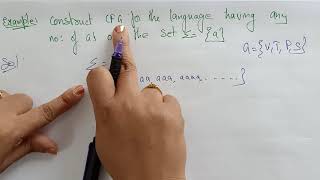 Example: Construct CFG for the language having any
no: of a's the set Σ = {a}
G = {V, T, P, S}
Sol:
Σ =
aa, aaa, aaaa, ......}